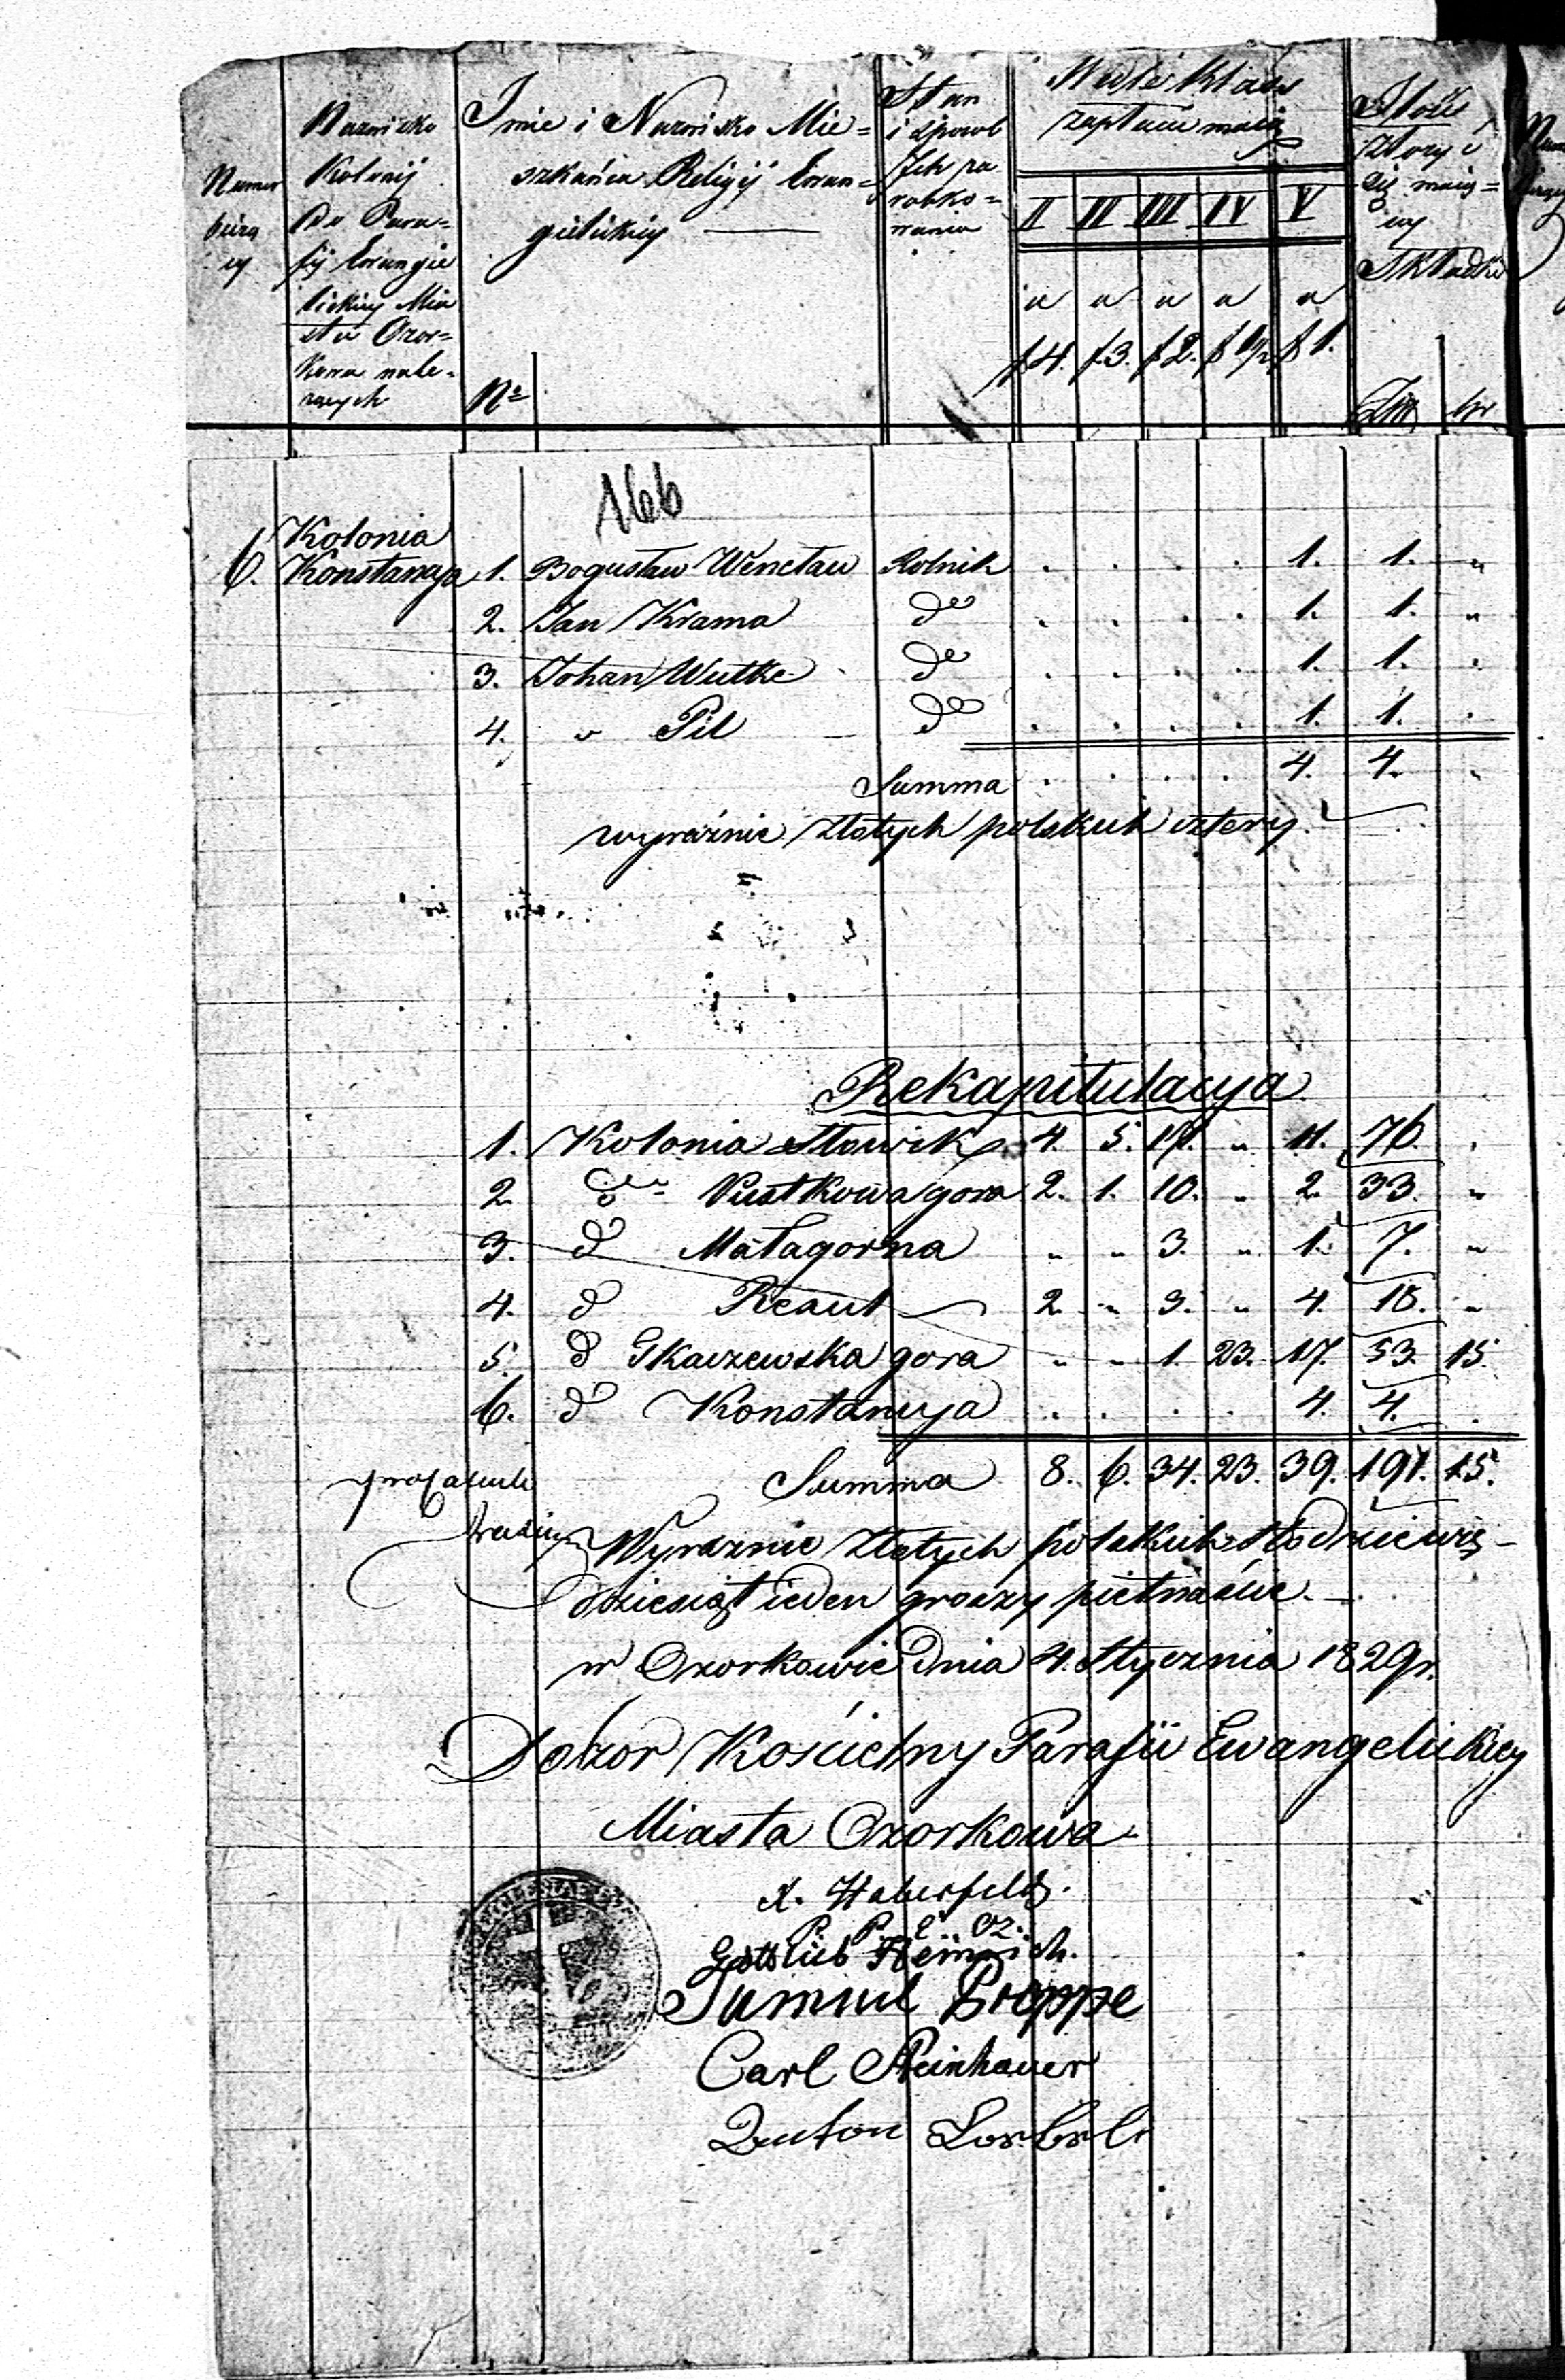 Numer
bieżą
cy
Nazwisko
Kolonij
do Para=
fij Ewangie
lickiey Mia
sta Ozor=
kowa nale=
żących
Imie i Nazwisko Mie=
szkańca Religij Ewan=
gielickiey
No
Stan
i sposob
Ich za
robko=
wania
Wiele Klass
zapłacić maią
II II III IV V
a a a a a
f 4. f 3. f 2. f 1½ f 1.
Ilość
złożyć
się maią=
cey
Składki
Złp gr
166
Kolonia
6. Konstancya 1. Bogusław Wenclaw Rolnik . . . . 1. 1. "
2. Jan Krama do . . . . 1. 1. "
3. Johan Wutke do . . . . 1. 1. .
4. " Pil do . . . . 1. 1. .
Summa . . . . 4. 4. .
wyraźnie złotych polskich cztery.
Rekapitulacya
1. Kolonia Słowik 4. 5. 17. " 11. 76. .
2 do Pustkowa gora 2. 1. 10. " 2. 33. "
3. d Małagorna " " 3. " 1. 7. "
4. d Reaut 2. " 3. " 4. 18. "
5. d Skaczewska gora " " 1. 23. 17. 53. 15.
6. d Konstancya . . . . 4. 4. .
Summa 8. 6. 34. 23. 39. 191. 15.
Wyraznie złotych polskich sto dziewię-
dziesiąt ieden groszy pietnaście.
w Ozorkowie dnia 4. Stycznia 1829 r.
Dozor Kościelny Parafii Ewangelickiey
Miasta Ozorkowa
X. Haberfeld.
P. P. E. Oz.
Gottlieb Heinrich.
Samuel Proppe
Carl Steinhauer
Anton Loebel